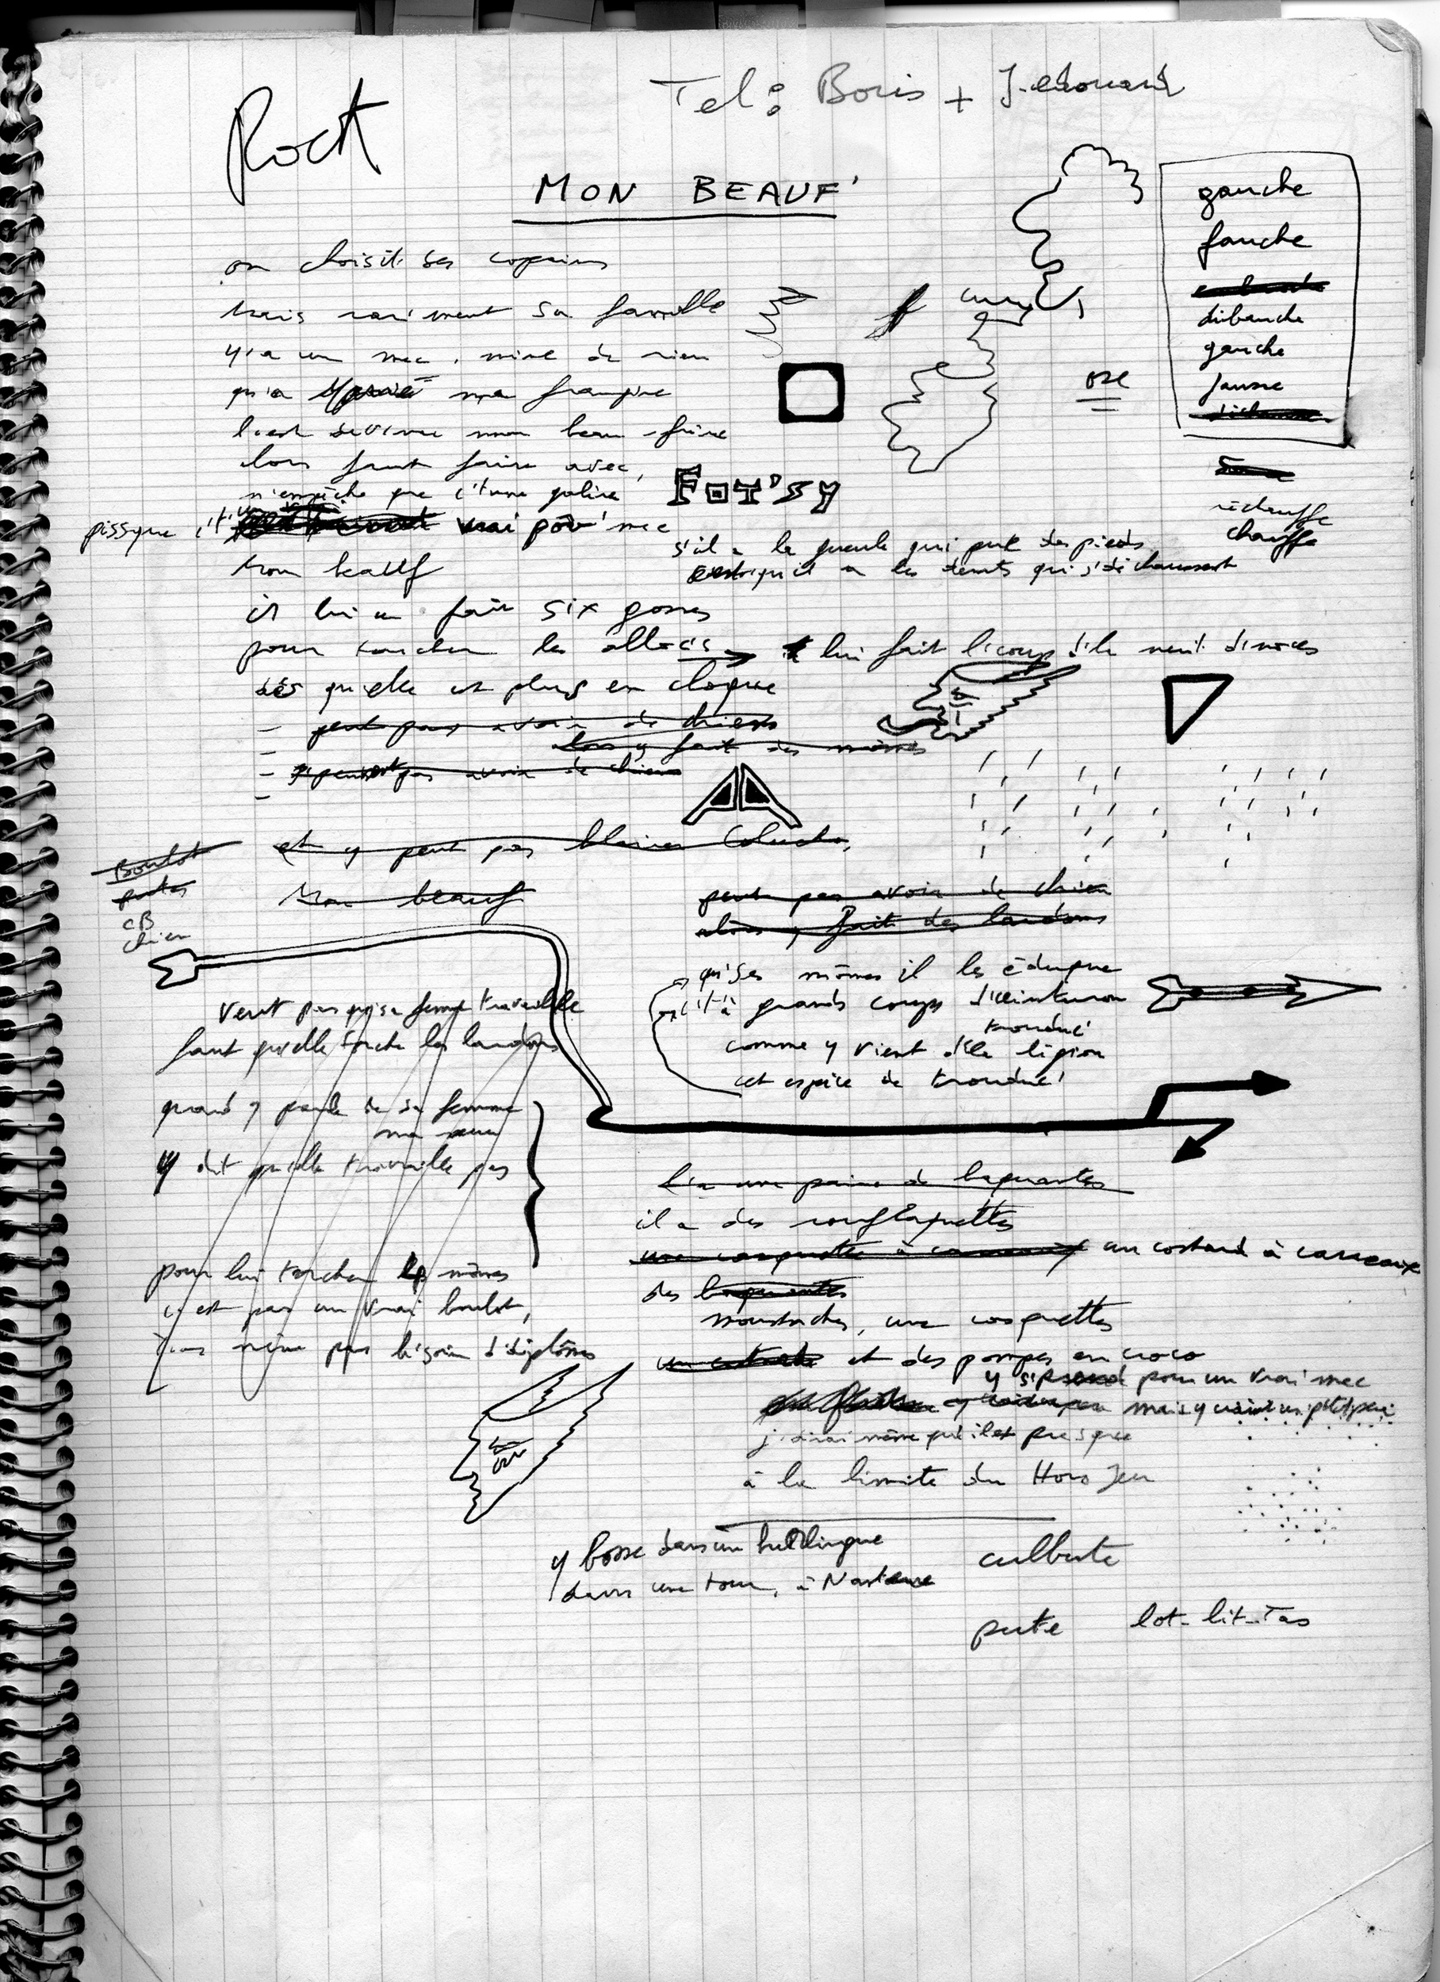 Tel: Boris + J-edouard
Rock
MON BEAUF'
on choisit ses copains
mais rar'ment sa famille
y'a un mec, mine de rien
qu'a marié ma frangine
l'est devenu mon beau-frère
alors faut faire avec,
n'empêche que c't'une galère
pissque c't'un vrai pov' mec
Mon beauf
il lui a fait six gosses
pour toucher les allocs → lui fait l'coup d'la nuit d'noces
dès qu'elle est plus en cloque
- peut pas avoir de chiens
- alors y fait des mômes
- peut pas avoir de chien
-
et y peut pas blairer Coluche,
Mon beauf
gauche
fauche
débauche
gauche
fausse
réchauffe
chauffe
ose
FOT'SY
s'il a la gueule qui pue des pieds
c'est qu'il a les dents qui s'déchaussent
Boulot
putes
CB
chien
peut pas avoir de chien
alors y fait des lardons
qu'ses mômes il les éduque
c't'à grands coups d'ceinturon
comme y vient d'la légion
cet espèce de trouduc'
trouduc'
veut pas qu'sa femme travaille
faut qu'elle torche les lardons
quand y parle de sa femme
ma sœur
y dit qu'elle travaille pas
pour lui torcher les mômes
c'est pas un vrai boulot,
même pas b'soin d'diplômes
l'a une paire de baquantes
il a des rouflaquettes
une casquette à carreaux un costard à carreaux
des baquantes
moustaches, une casquette
un costard et des pompes en croco
y s'prend pour un vrai mec
mais y craint un p'tit peu
j'dirai même qu'il est presque
à la limite du Hors Jeu
y bosse dans un
dans une tour, à Nanterre
culbute
pute lot-lit-Tas